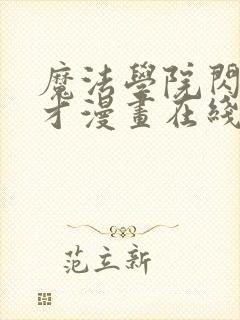 魔法學院閃
才漫畫在綫
范立新